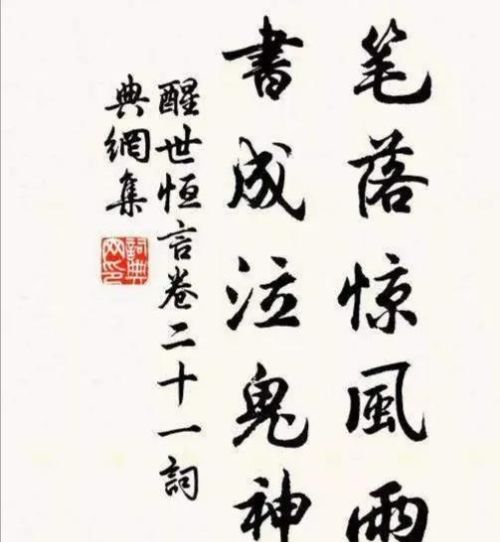 笔落惊風雨
書成泣鬼神
醒世恒言卷二十一詞
典網集
詞典
网印